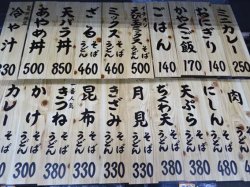 ミニカレー 250
おにぎり 140
かやくご飯 170
ごはん 140
そば うどん 460
ミックス そば うどん 500
ざる そば うどん 460
天バラ丼 850
あやめ丼 500
冷や汁 230
肉 そば うどん
にしん そば うどん 480
天ぷら そば うどん 380
ちくわ天 そば うどん 380
月見 そば うどん 330
きざみ そば うどん 330
昆布 そば うどん 330
きつね そば うどん
かけ そば うどん
カレー そば うどん